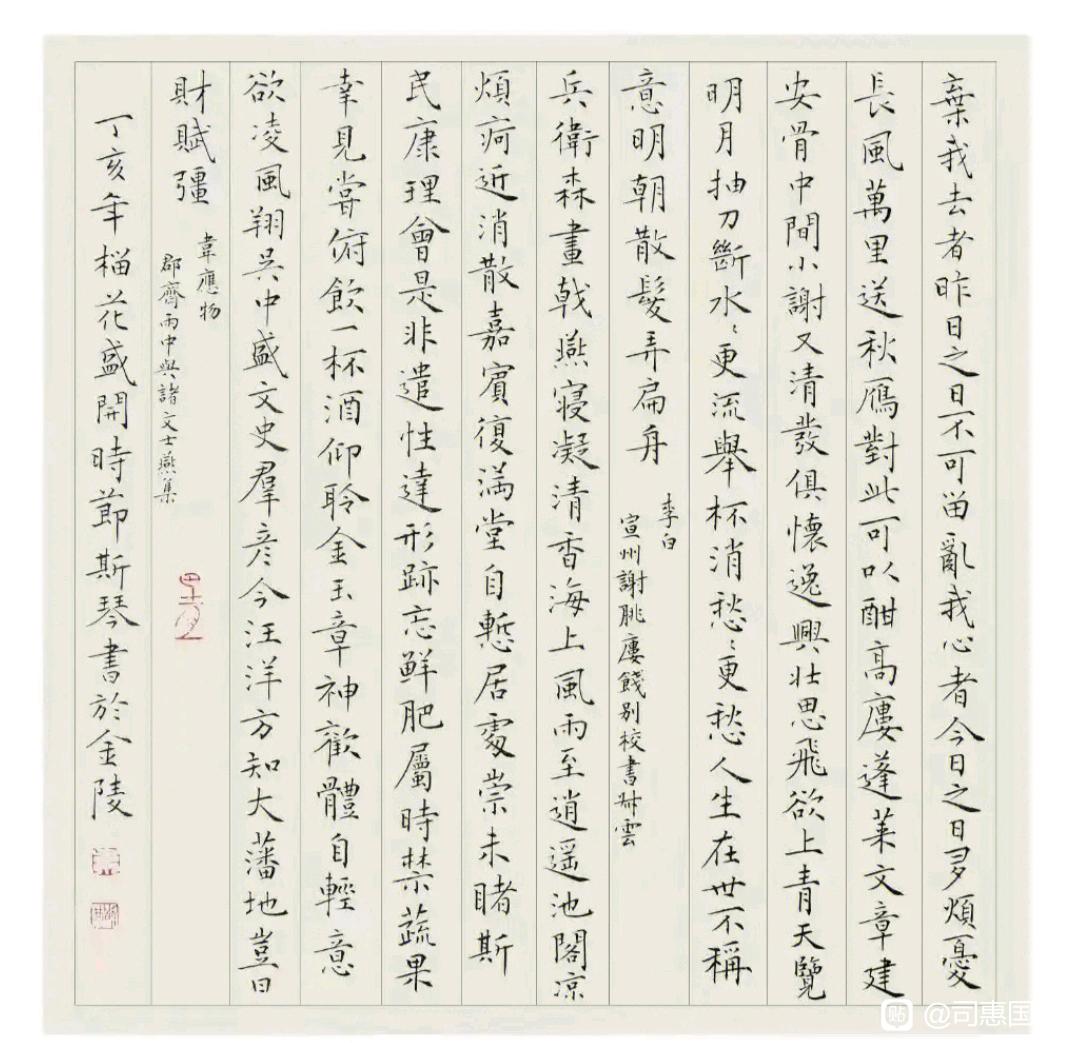 棄我去者昨日之日不可畱亂我心者今日之日多煩憂
長風萬里送秋鴈對此可以酣高廔蓬萊文章建
安骨中間小謝又清發俱懷逸興壯思飛欲上青天覽
明月抽刀斷水〻更流舉杯消愁〻更愁人生在世不稱
意明朝散髮弄扁舟
李白
宣州謝朓廔餞别校書叔雲
兵衛森畫戟燕寢凝清香海上風雨至逍遥池閣凉
煩疴近消散嘉賓復滿堂自慙居處崇未睹斯
民康理會是非遣性達形跡忘鮮肥屬時禁蔬果
幸見嘗俯飲一杯酒仰聆金玉章神歡體自輕意
欲凌風翔吳中盛文史羣彦今汪洋方知大藩地豈曰
財賦彊
韋應物
郡齋雨中與諸文士燕集
丁亥年榴花盛開時節斯琴書於金陵
贴 @司惠国